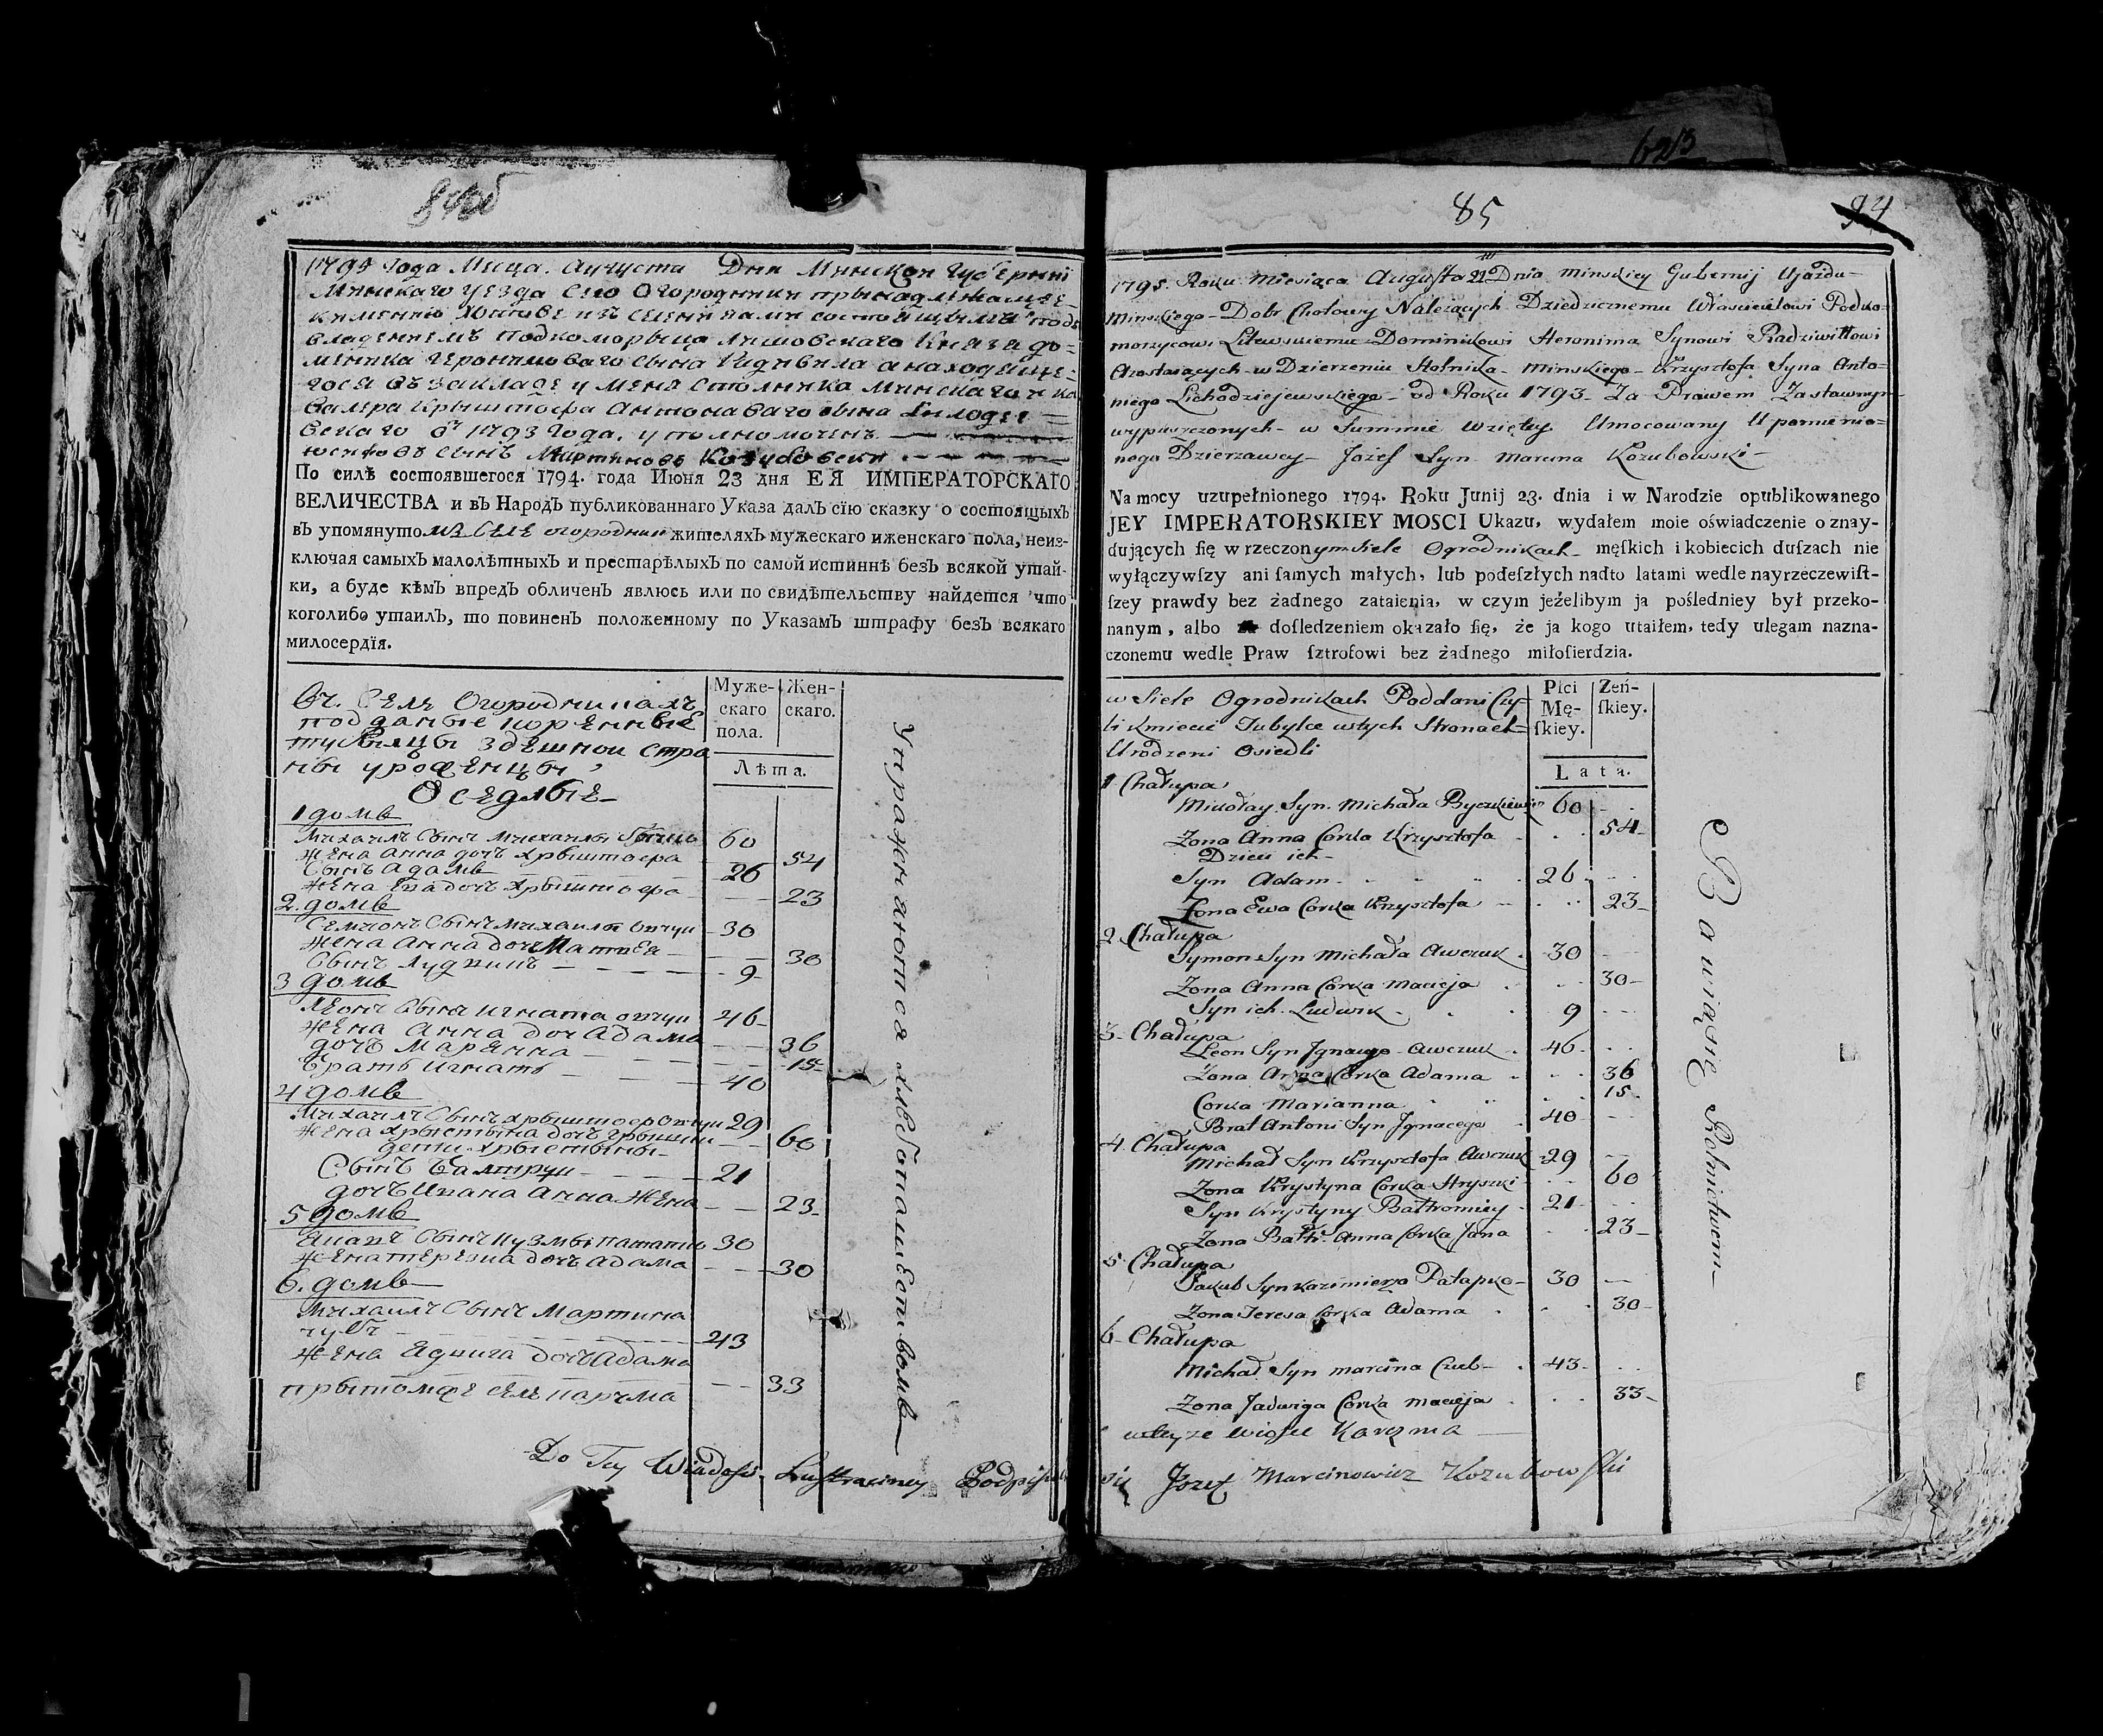 84об
1795 Года Мца. Августа Дня Минской Губернiи
Минскаго уезда Село Огородники принадлежащее
къ имению Хотове
владениемъ подкоморыца литовскаго Князя До-
миника Геронимоваго сына Радивила а находяще-
гося въ закладе у меня столника Минскаго и ка
валера Крыштофа Антоноваго сына
вскаго отъ 1793 года. уполномоченъ
сынъ Мартиновъ Козубовски
По силѣ состоявшегося 1794. года Июня 23 дня ЕЯ ИМПЕРАТОРСКАГО
ВЕЛИЧЕСТВА и въ Народъ публикованнаго Указа далъ сїю сказку о состоящыхъ
въ упомянутомъ селе огородник жителяхъ мужескаго иженскаго пола, неиз-
ключая самыхъ малолѣтныхъ и престарѣлыхъ по самой истиннѣ безъ всякой утай-
ки, а буде кѣмъ впредъ обличенъ явлюсь или по свидѣтельству найдется что
коголибо утаилъ, то повиненъ положенному по Указамъ штрафу безъ всякаго
милосердїя.
Муже-скаго пола. Жен-скаго.
Лѣта.
Въ. Селе Огородникахъ
подданые коренные
тубылцы здешной стра
ны уроженцы,
Оседлые
1 домъ
сынъ Михайлы 60
жена Анна дочь Хрыштофера 54
сынъ Адамъ 26
жена Ева дочь Хрыштофера 23
2. домъ
Семион сынъ Михаила 30
жена Анна доч Матвея 30
сынъ Лудвикъ 9
3 домъ
Леон сынъ Игната 46
жена Анна доч Адама 36
дочь Марянна 15
братъ Игнатъ 40
4 домъ
Михаилъ сынъ Хрыштофера 29
жена Хрыстына дочъ 60
дети Хрыстыны
сынъ 21
дочъ Ивана Анна жена 23
5 домъ
сынъ Кузмы 30
жена Терезиа дочъ Адама 30
6. домъ
Михаилъ сынъ Мартина
чубъ 43
жена Адвига дочъ Адама 33
прытомже селе карчма
Упражняются хлебопашеством
Do Tey Wiadości Lustracyiney Podpisuie
623
85
94
1795. Roku Miesiąca Augusta 22 Dnia Minskiey Gubernij Ujazdu
Minskiego Dobr Chotowy Należących Dziedzicznemu Właścicielowi Podko-
morzycowi Litewskiemu Dominikowi Heronima Synowi Radziwiłłowi
A zostaiących w Dzierzeniu Stolnika Minskiego Krzysztofa Syna Anto=
niego Lichodziejewskiego od Roku 1793 Za Prawem Zastawnym
wypuszczonych w Summie wziętey Umocowany Upomienio=
nego Dzierzawcy Jozef Syn Marcina Kozubowski
Na mocy uzupełnionego 1794. Roku Junij 23. dnia i w Narodzie opublikowanego
JEY IMPERATORSKIEY MOSCI Ukazu, wydałem moie oświadczenie o znay-
duiących ſię w rzeczonym Siele Ogrodnikach męſkich i kobiecich duſzach nie
wyłączywſzy ani ſamych małych, lub podeſzłych nadto latami wedle nayrzeczewiſt-
ſzey prawdy bez żadnego zataienia, w czym jeżelibym ja pośledniey był przeko-
nanym, albo doſledzeniem okazało ſię, że ja kogo utaiłem, tedy ulegam nazna-
czonemu wedle Praw ſztrofowi bez żadnego miłoſierdzia.
Płci Mę-ſkiey. Żeń-ſkiey.
Lata.
w Siele Ogrodnikach Poddani Czy-
li Kmiecie Tubylce w tych Stronach
Urodzeni Osiedli
1 Chałupa
Mikołay Syn Michała 60
Zona Anna Corka Krzysztofa 54
Dzieci ich
Syn Adam 26
Zona Ewa Corka Krzysztofa 23
2 Chałupa
Symon Syn Michała Awczuk 30
Zona Anna Corka Macieja 30
Syn ich Ludwik 9
3. Chałupa
Leon Syn Jgnacego Awczuk 46
Zona Anna Corka Adama 36
Corka Marianna 15
Brat Antoni Syn Jgnacego 40
4. Chałupa
Michał Syn Krzysztofa Awczuk 29
Zona Krystyna Corka Hryszki 60
Syn Krystyny Bałtromiey 21
Zona Bałtr. Anna Corka Jana 23
5. Chałupa
Jakub Syn Kazimierza Patapko 30
Zona Teresa Corka Adama 30
6 Chałupa
Michał Syn Marcina Czub 43
Zona Jadwiga Corka Macieja 33
w teyze wiosce Karczma
Bawią się Rolnictwem
się Jozef Marcinowicz Kozubowski